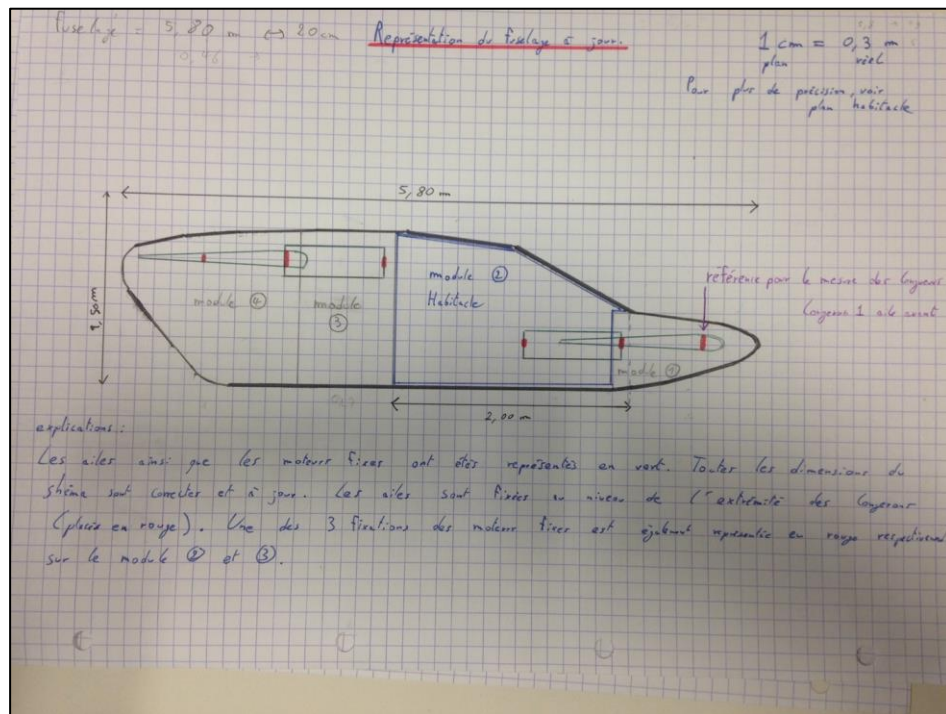 fuselage = 5,80 m ↔ 20 cm
Représentation du fuselage à jour.
1 cm = 0,3 m
plan réel
Pour plus de précision, voir
plan habitacle
5,80 m
1,50m
module ②
Habitacle
module ④
module
③
référence pour la mesure des longerons
longeron 1 aile avant
module ①
2,00 m
explications :
Les ailes ainsi que les moteurs fixes ont étés représentés en vert. Toutes les dimensions du
shéma sont correctes et à jour. Les ailes sont fixées au niveau de l'extrémité des longerons
(placés en rouge). Une des 3 fixations des moteurs fixes est également représentée en rouge respectivement
sur le module ② et ③.